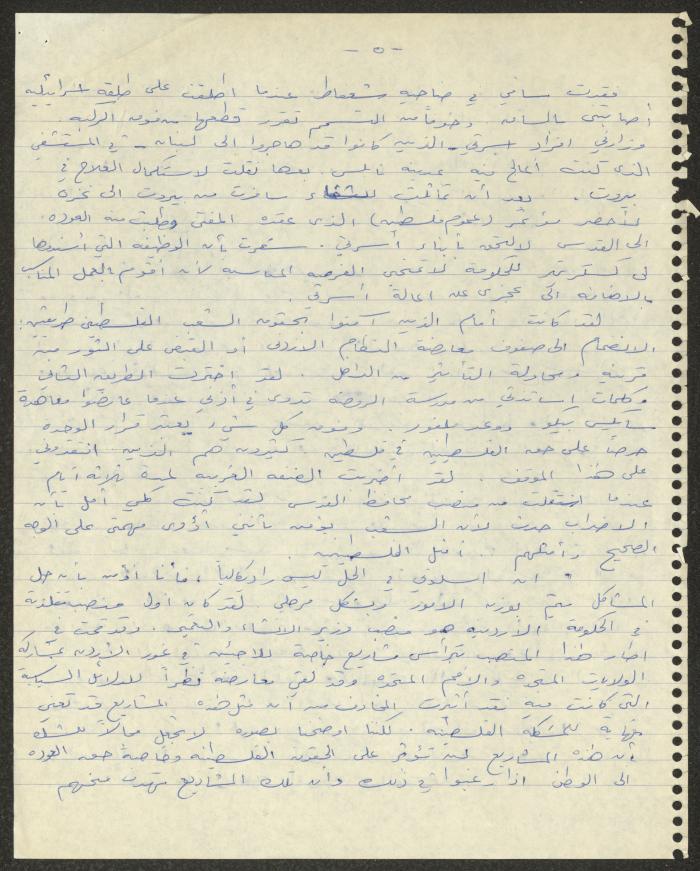 - ٥ -
فقدت ساقي في ضاحية شعفاط عندما اطلقت على طلقة اسرائيلية
أصابتني بالساق. وخوفاً من التسمم تقرر قطعها من فوق الركبة.
وزارني افراد اسرتي - الذين كانوا قد هاجروا الى لبنان - في المستشفى
الذي كنت أعالج فيه بمدينة نابلس. بعدها نقلت لاستكمال العلاج في
بيروت. بعد أن تماثلت للشفاء سافرت من بيروت الى غزة
لأحضر مؤتمر (عموم فلسطين) الذي عقده المفتي وطلبت منه العودة
الى القدس لالتحق بأبناء أسرتي. شعرت بأن الوظيفة التي أسندها
لي كسكرتير للحكومة لا تمنحني الفرصة المناسبة لأن أقوم بالعمل المناسب
بالاضافة الى عجزي عن اعالة أسرتي.
لقد كانت أمام الذين آمنوا بحقوق الشعب الفلسطيني طريقتين:
الانضمام الى صفوف معارضة النظام الاردني أو القبض على الثور من
قرنيه ومحاولة التأثير من الداخل. لقد اخترت الطريقة الثاني
وكلمات اساتذتي من مدرسة الروضة تدوي في أذني عندما عارضوا معاهدة
سايكس بيكو ووعد بلفور. وفوق كل شيء يعتبر قرار الوحدة
حرصاً على حق الفلسطينيين في فلسطين. كثيرون هم الذين انتقدوني
على هذا الموقف. لقد أضربت الضفة الغربية لمدة ثلاثة أيام
عندما استقلت من منصب محافظ القدس لقد كنت كلي أمل بأن
الاضراب حدث لأن الشعب يؤمن بأنني أؤدي مهمتي على الوجه
الصحيح وأمثلهم. أمثل الفلسطينيين.
ان اسلوبي في الحل ليس راديكالياً، فأنا أؤمن بأن حل
المشاكل يتم بوزن الأمور وبشكل مرحلي. لقد كان أول منصب تقلدته
في الحكومة الأردنية هو منصب وزير الانشاء والتعمير. وقد قمت في
اطار هذا المنصب بتأسيس مشاريع خاصة للاجئين في غور الأردن بمشاركة
الولايات المتحدة والأمم المتحدة وقد لقي معارضة نظراً للدلائل السياسية
التي كانت فيه فقد أثيرت المخاوف من أن مثل هذه المشاريع قد تعني
نهاية للمشكلة الفلسطينية. لكننا اوضحنا بصورة لا تجعل مجالاً للشك
أن هذه المشاريع لن تؤثر على الحقوق الفلسطينية وخاصة حق العودة
الى الوطن اذا رغبوا في ذلك وأن تلك المشاريع تهدف منحهم